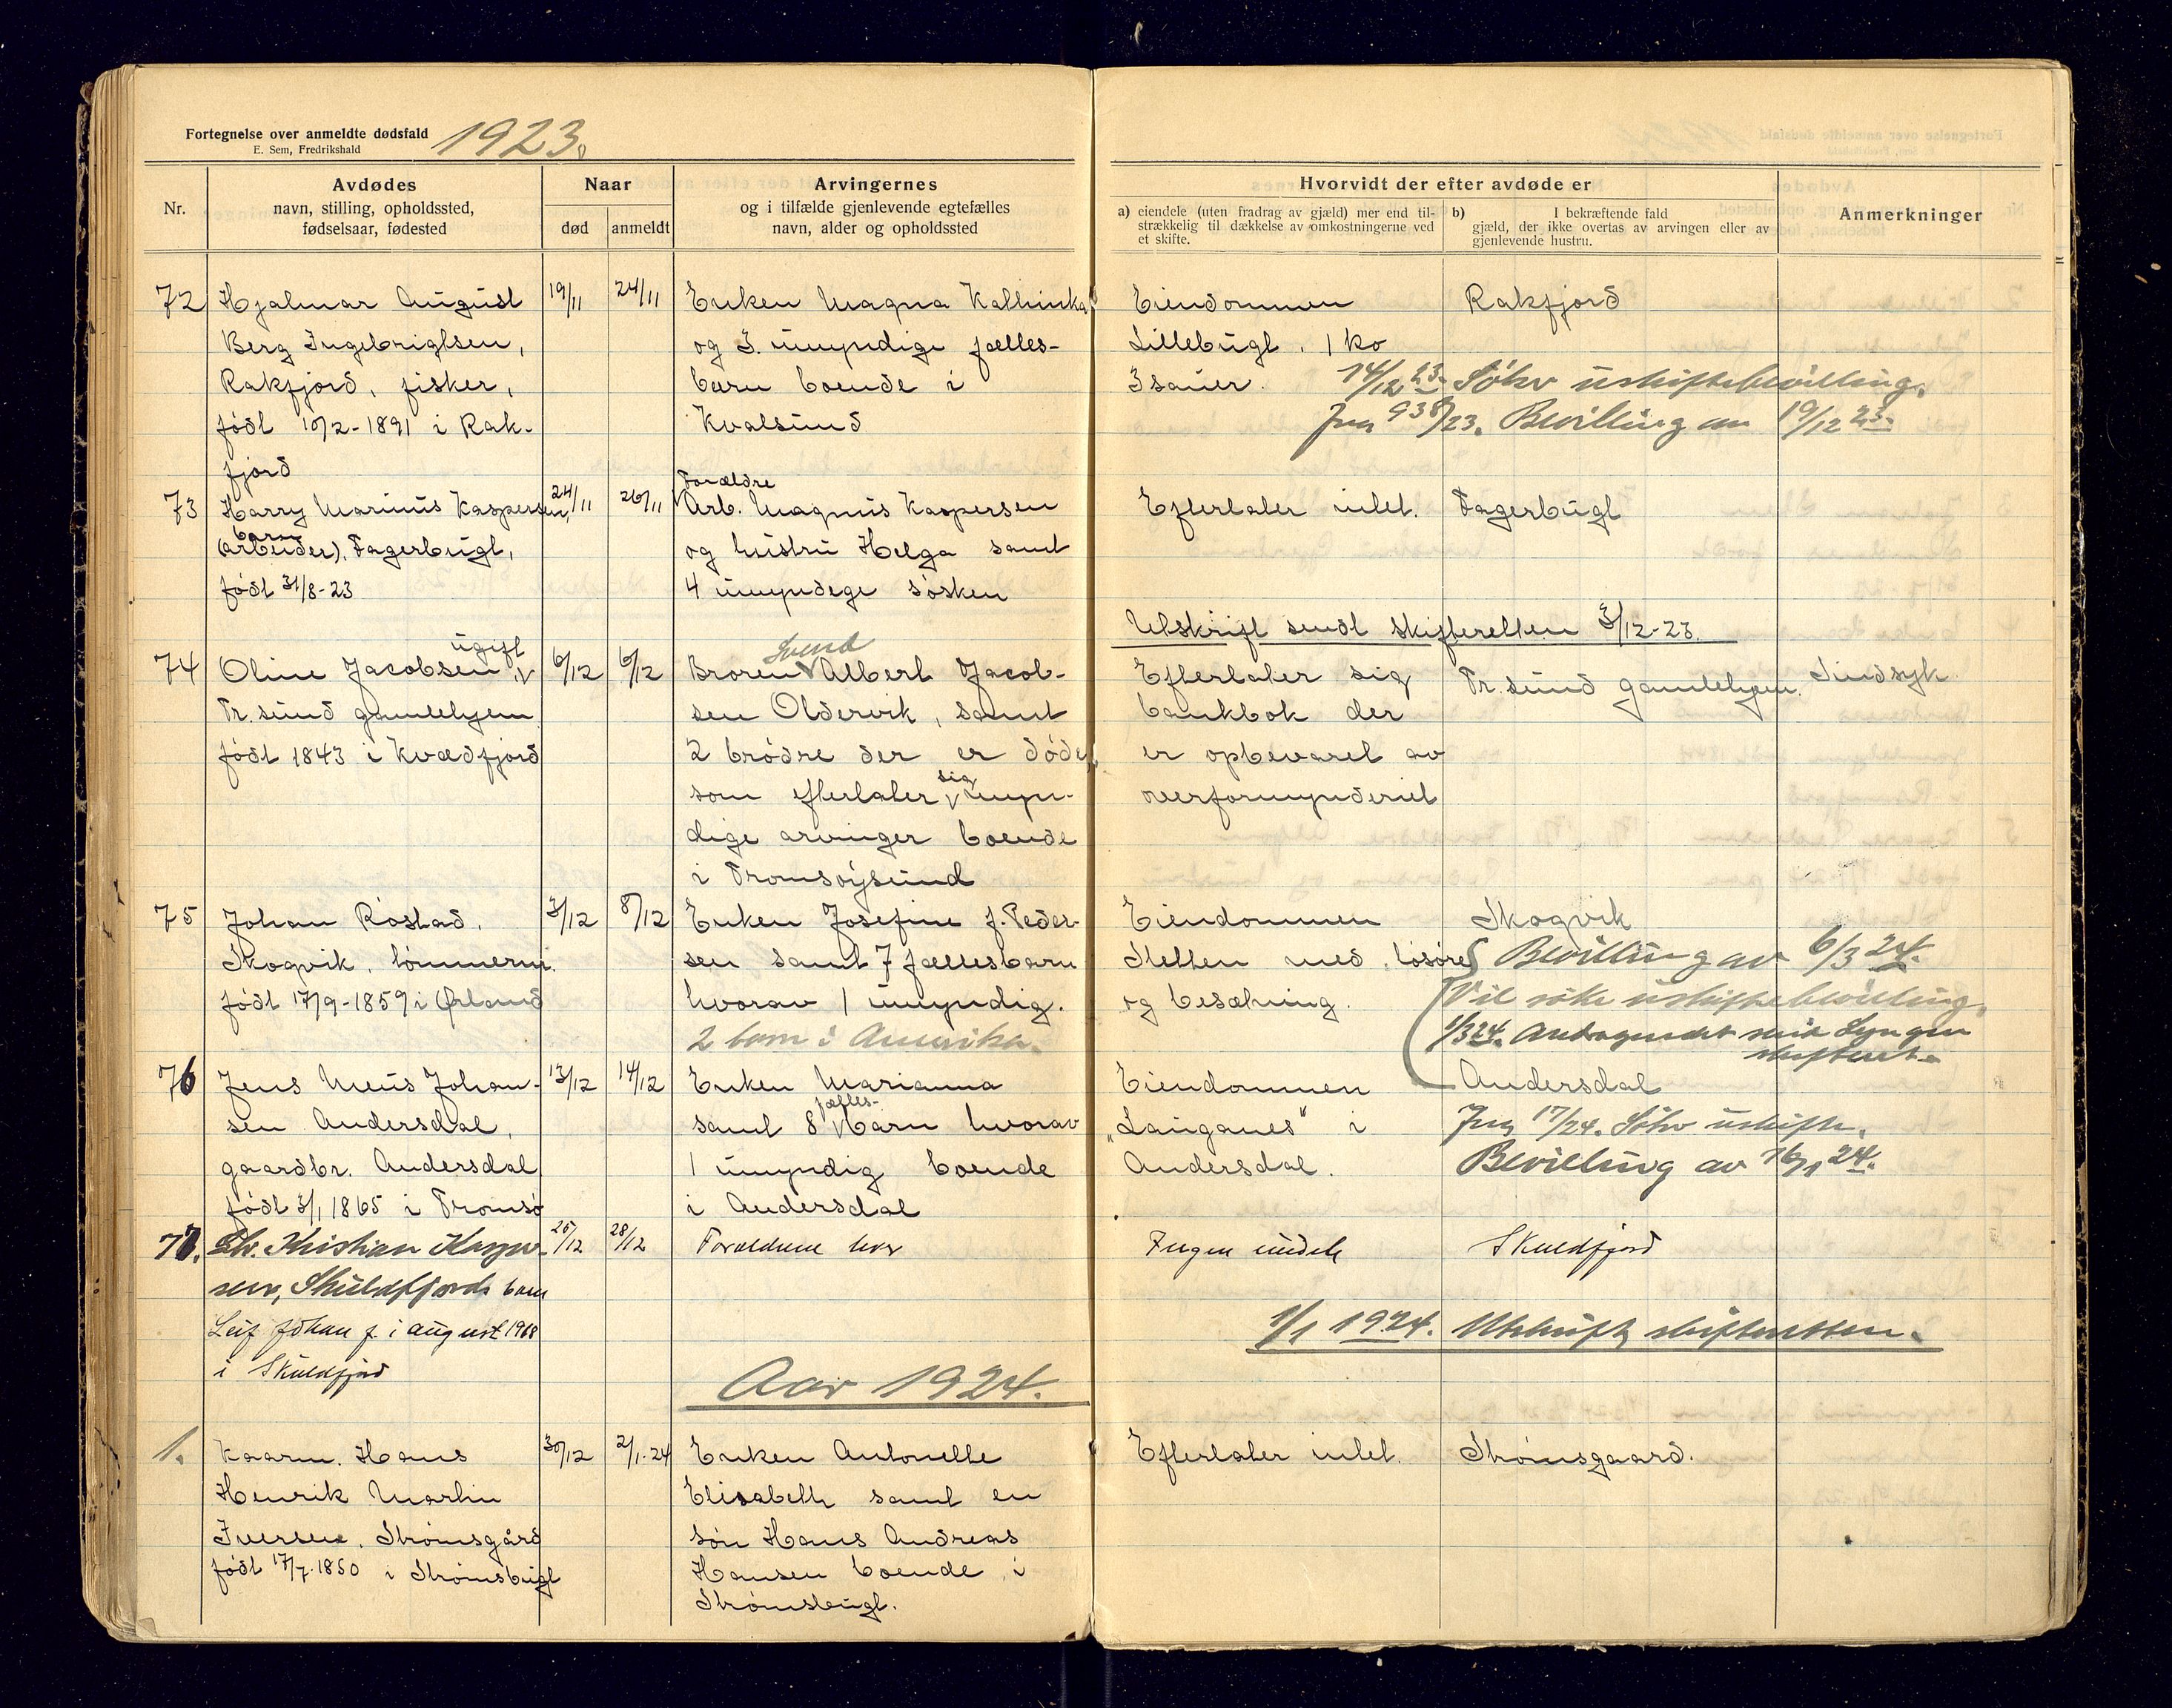 Fortegnelse over anmeldte dødsfald 1923.
E. Sem, Fredrikshald
Nr.
Avdødes
navn, stilling, opholdssted,
fødselsaar, fødested
Naar
død
anmeldt
Arvingernes
og i tilfælde gjenlevende egtefælles
navn, alder og opholdssted
Hvorvidt der efter avdøde er
a) eiendele (uten fradrag av gjæld) mer end til-
strækkelig til dækkelse av omkostningerne ved
et skifte.
b) I bekræftende fald
gjæld, der ikke overtas av arvingen eller av
gjenlevende hustru.
Anmerkninger
72
Hjalmar August
Berg Ingebrigtsen,
Rakfjord, fisker,
født 10/2-1891 i Rak-
fjord
19/11
24/11
Enken Magna Kathinka
og 3 umyndige fælles-
barn boende i
Kvalsund
Eiendommen
Lillebugt, 1 ko
3 sauer.
Rakfjord
14/12 23. Søker uskiftebevilling.
Jnr 938/23. Bevilling av 19/12 23.
73
Harry Marinus Kaspersen,
barn
(arbeider), Fagerbugt,
født 31/8-23
24/11
26/11
Forældre
Arb. Magnus Kaspersen
og hustru Helga samt
4 umyndege søsken
Efterlater intet.
Fagerbugt
Utskrift sendt skifteretten 3/12-23.
74
ugift
Oline Jacobsen,
Tr.sund gamlehjem
født 1843 i Kvædfjord
6/12
6/12
Svend
Broren Albert Jacob-
sen Oldervik, samt
2 brødre der er døde,
som efterlater sig myn-
dige arvinger boende
i Tromsøysund
Efterlater sig
bankbok der
er opbevaret av
overformynderiet
Tr.sund gamlehjem.
Sindsyk
75
Johan Rostad,
Skogvik, tømmerm.
født 17/9-1859 i Ørland
3/12
8/12
Enken Josefine f. Peder-
sen samt 7 fællesbarn
hvorav 1 umyndig.
2 barn i Amerika.
Eiendommen
Sletten med løsøre
og besætning.
Skogvik
Bevilling av 6/3 24.
Vil søke uskiftebevilling.
1/3 24. Andragendet send Lyngen
skifteret.
76
Jens Meus Johan-
sen Andersdal,
gaardbr. Andersdal
født 3/1 1865 i Tromsø
13/12
14/12
Enken Marianna
fælles-
samt 8 barn hvorav
1 umyndig boende
i Andersdal
Eiendommen
"Langanes" i
Andersdal.
Andersdal
Jnr 17/24. Søker uskifte.
Bevilling av 16/1 24.
77.
Kristian Kasper-
sen, Skuldfjords barn
Leif Johan f. i august
i Skuldfjord
28/12
Forældrene lever
Ingen eiendele
Skuldfjord
1/1 1924. Utskrift skifteretten.
Aar 1924.
1.
Kaarm. Hans
Henrik Martin
Iversen, Strømsgård
født 17/7-1850 i Strømsbugt
30/12
2/1-24
Enken Antonette
Elisabeth samt en
søn Hans Andreas
Hansen boende i
Strømsbugt.
Efterlater intet.
Strømsgaard.